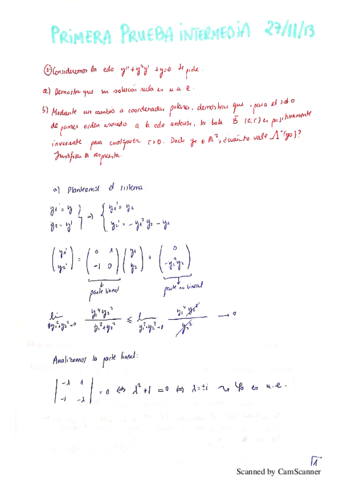 PRIMERA PRUEBA INTERMEDIA 27/11/13
① Consideremos la edo y'' + y²y' + y = 0 Se pide:
a) Demostrar que su solución nula es u.a.e.
b) Mediante un cambio a coordenadas polares, demostrar que, para el sdo
de primer orden asociado a la edo anterior, la bola B̄(0,r) es positivamente
invariante para cualquier r>0. Dado y₀ ∈ ℝ², ¿cuánto vale Λ⁺(y₀)?
Justifica la respuesta.
a) Planteamos el sistema
y₁ = y
y₂ = y' } → { y₁' = y₂
y₂' = -y₁²y₂ - y₁
(y₁' y₂') = (0 1 -1 0)(y₁ y₂) + (0 -y₁²y₂)
parte lineal parte no lineal
lim y₁⁴y₂² / y₁²+y₂² ≤ lim y₁⁴y₂² / y₂² → 0
Analizamos la parte lineal:
|-λ 1 -1 -λ| = 0 ⇔ λ²+1 = 0 ⇔ λ = ±i ⇝ es u.e.
Scanned by CamScanner